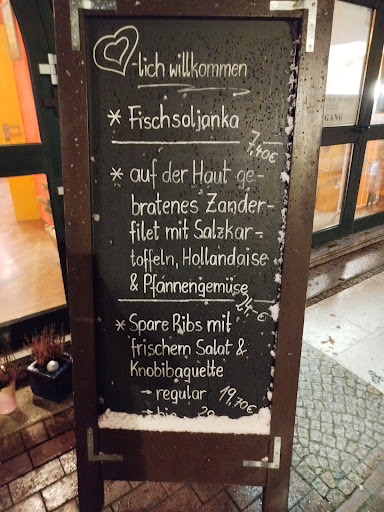 -lich willkommen
* Fischsoljanka
7,40€
* auf der Haut ge-
bratenes Zander-
filet mit Salzkar-
toffeln, Hollandaise
& Pfannengemüse
24,-€
* Spare Ribs mit
frischem Salat &
Knobibaguette
→ regular 19,70€